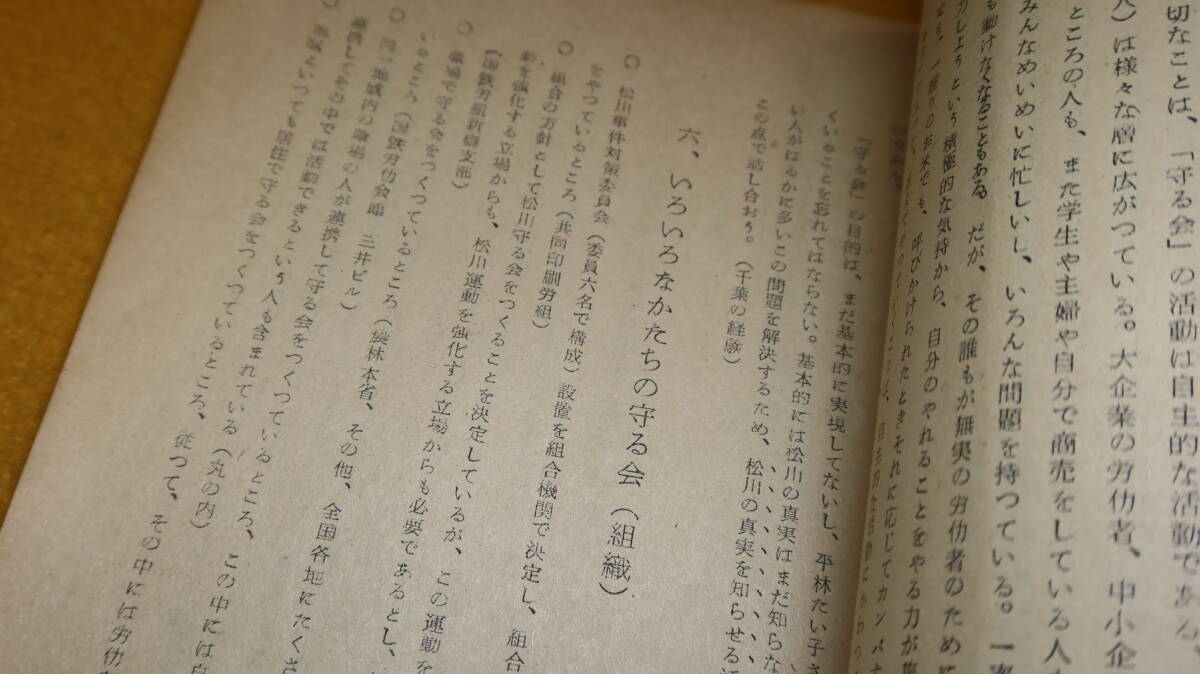 切なことは、「守る会」の活動は自主的な活動である、
人）は様々な層に広がつている。大企業の労仂者、中小企
ところの人も、また学生や主婦や自分で商売をしている人
みんなめいめいに忙しいし、いろんな問題を持つている。一
も動けなくなることもある。だが、その誰もが無実の労仂者のために
力しようという積極的な気持から、自分のやれることをやる力が
一握りのお米でも、呼びかけられたときそれに応じてカンパ
「守る会」の目的は、まだ基本的に実現してないし、平林たい子さ
くいゆことを忘れてはならない。基本的には松川の真実はまだ知らな
い人がはるかに多いこの問題を解決するため、松川の真実を知らせる
この点で話し合おう。（千葉の経験）
六、いろいろなかたちの守る会（組織）
○ 松川事件対策委員会（委員六名で構成）設置を組合機関で決定し、組合
をやつているところ（共同印刷労組）
○ 組合の方針として松川守る会をつくることを決定しているが、この運動を
動を強化する立場からも、松川運動を強化する立場からも必要であるとし、
（国鉄労組新橋支部）
○ 職場で守る会をつくつているところ（農林本省、その他、全国各地にたくさ
いゆところ（国鉄労仂会館 三井ビル）
○ 同一地域内の職場の人が連携して守る会をつくつているところ、この中には
連携してその中では活動できるという人も含まれている（丸の内）
○ 地域といつても居住で守る会をつくつているところ、従つて、その中には労仂